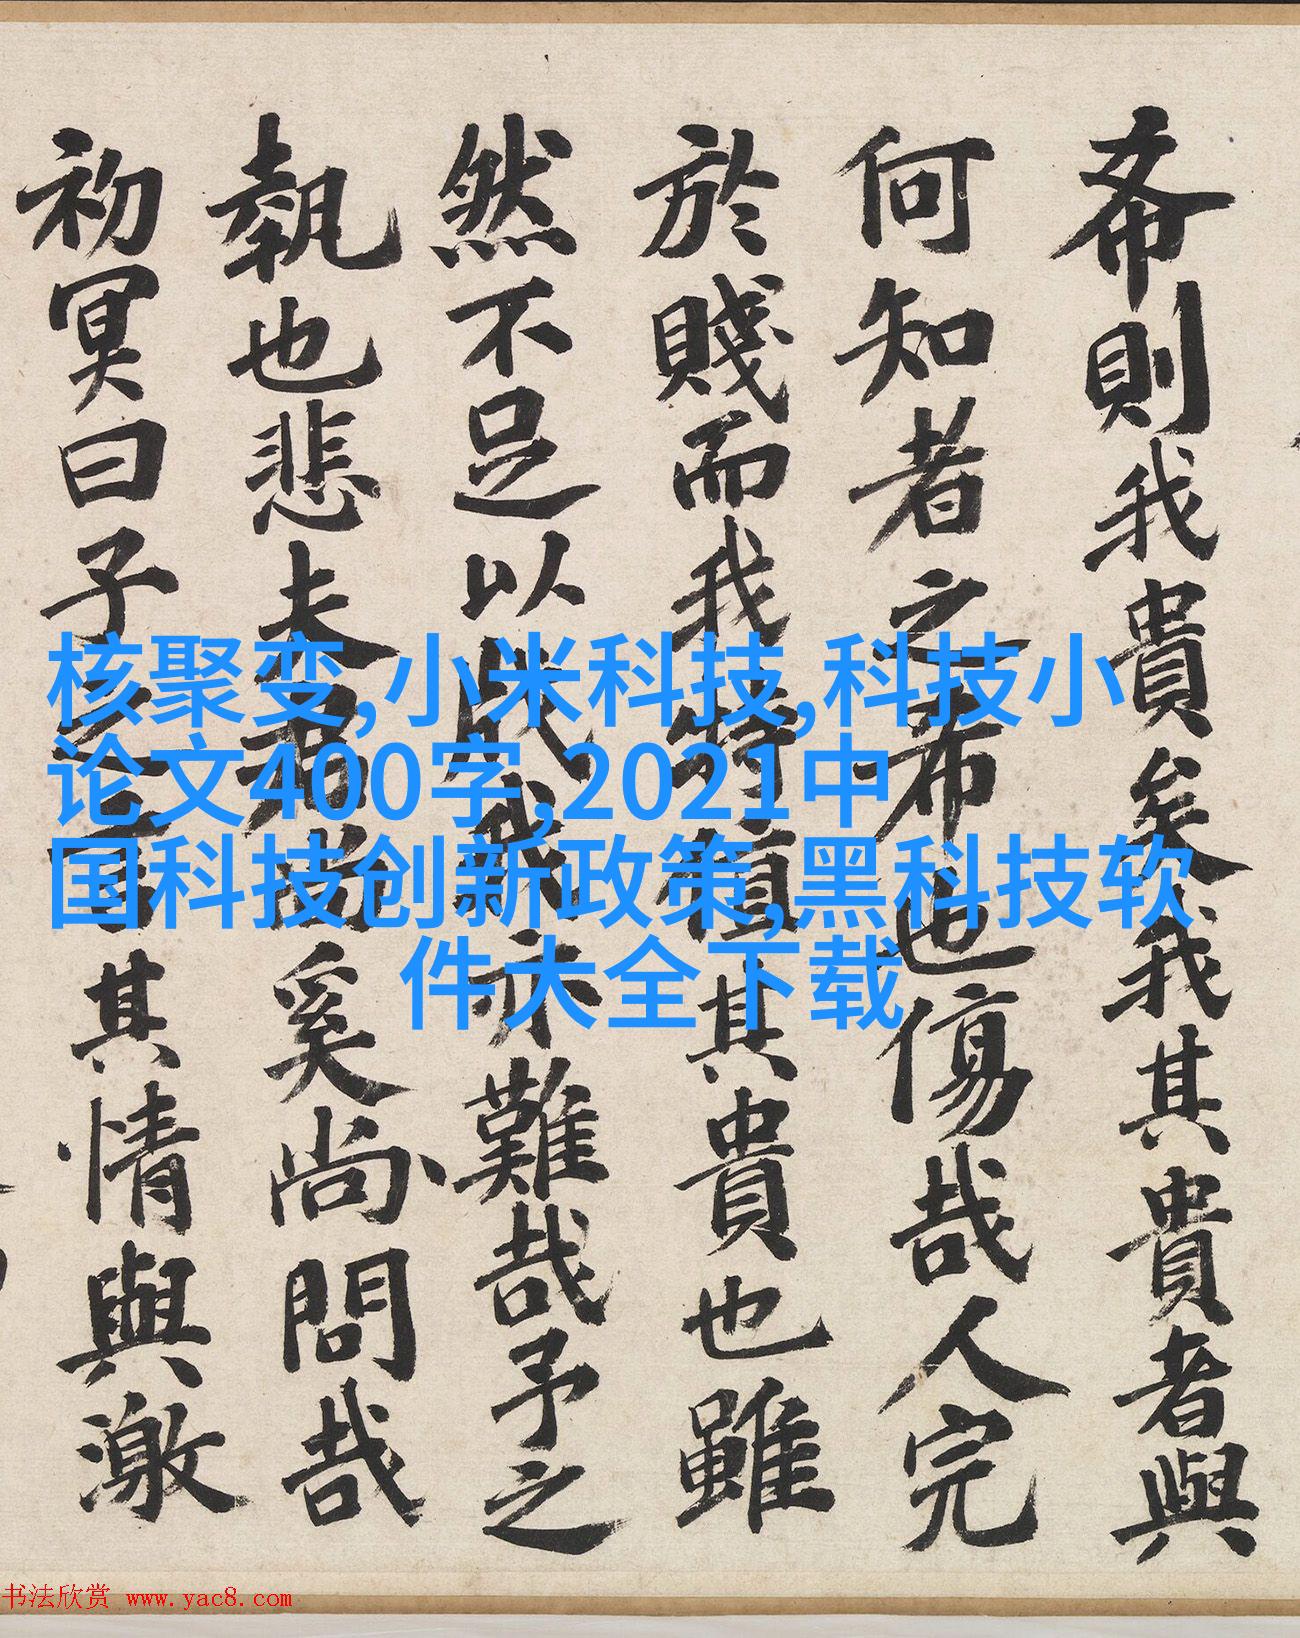 希則我貴矣我其貴者與
何知者之希也傷哉人完
於賤而我特其貴也雖
然不足以戕我亦難哉予之
執也悲夫君尚奚尚問哉
初冥曰子之言其情與激
核聚变,小米科技,科技小
论文400字,2021中
国科技创新政策,黑科技软
件大全下载
书法欣赏 www.yac8.com